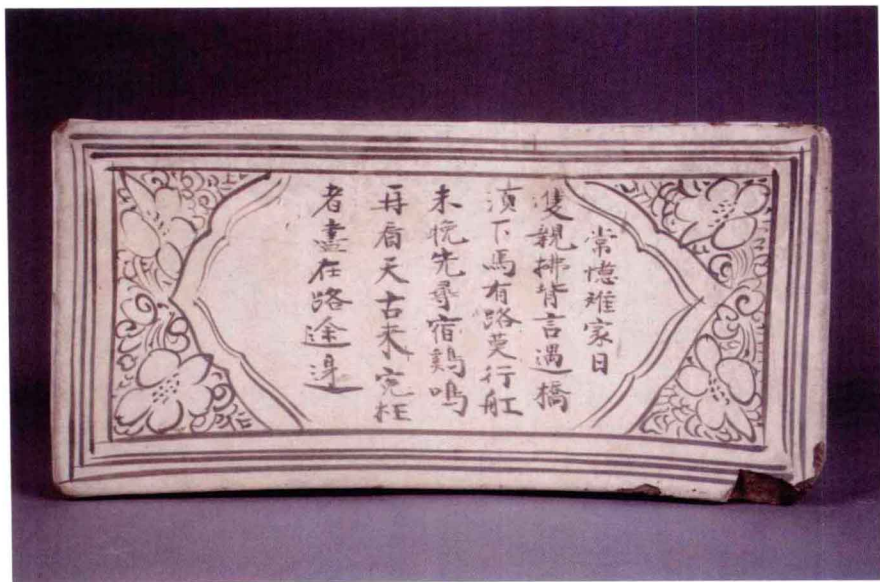 常憶離家日
隻親拂背言遇橋
湏下馬有路莫行舡
未晚先尋宿鷄鳴
再看天古来寃枉
者盡在路途邊